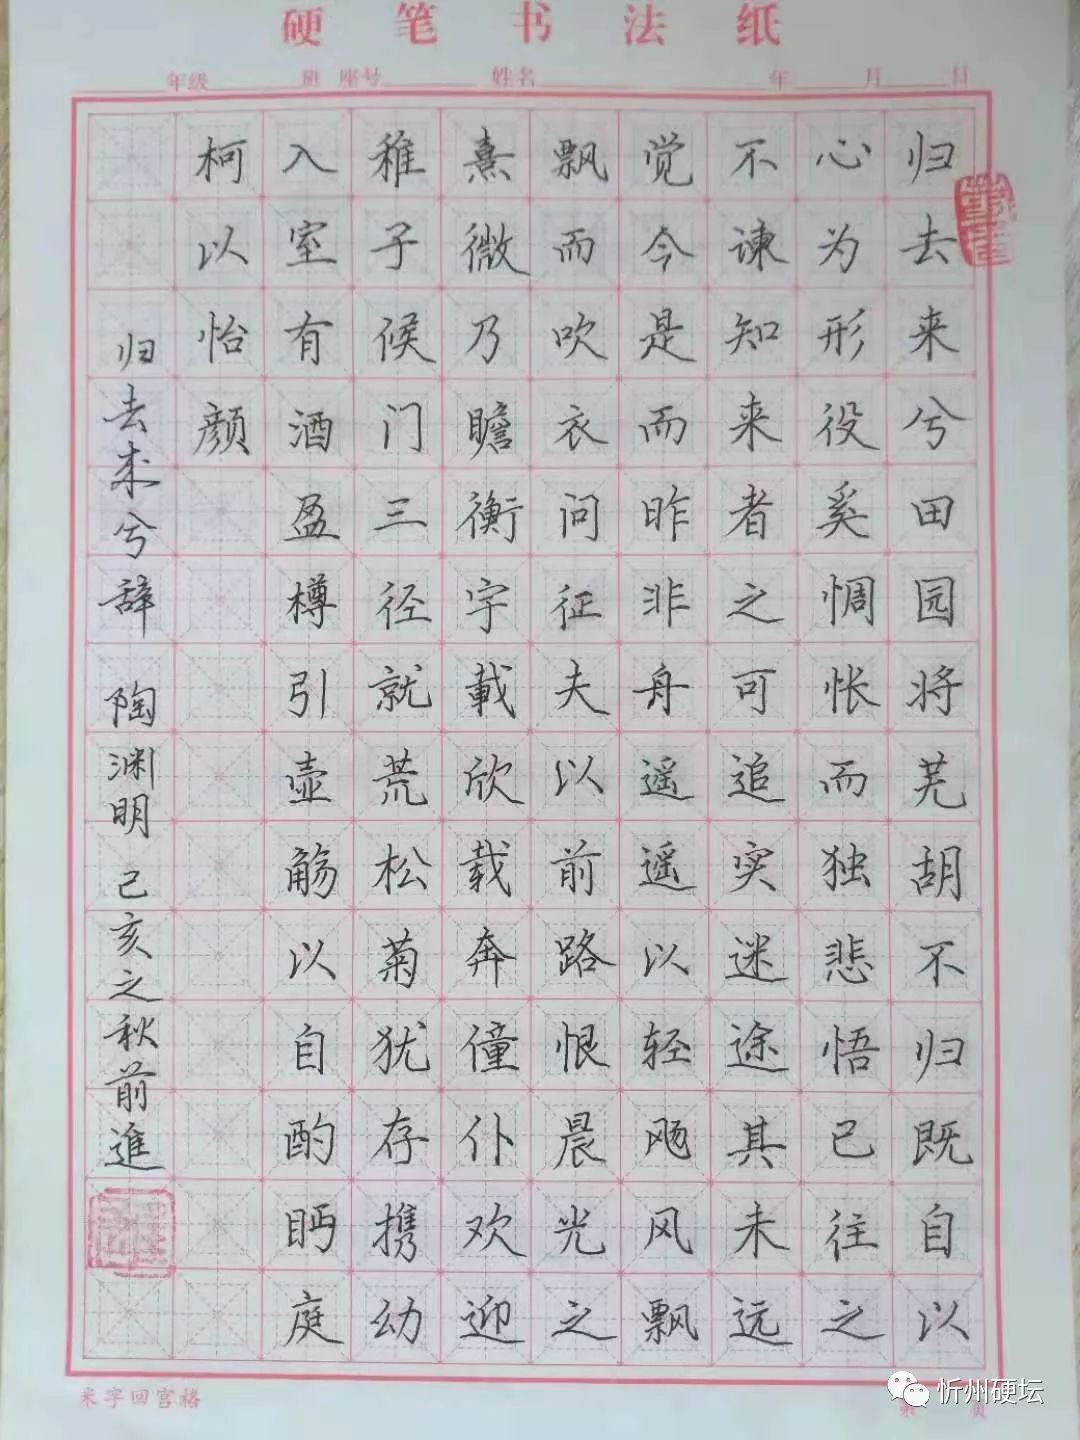 硬笔书法纸
年级 班 座号 姓名 年 月 日
归去来兮田园将芜胡不归既自以
心为形役奚惆怅而独悲悟已往之
不谏知来者之可追实迷途其未远
觉今是而昨非舟遥遥以轻飏风飘
飘而吹衣问征夫以前路恨晨光之
熹微乃瞻衡宇載欣载奔僮仆欢迎
稚子候门三径就荒松菊犹存携幼
入室有酒盈樽引壶觞以自酌眄庭
柯以怡颜
归去来兮辞 陶渊明 己亥之秋前進
米字回宫格
第 页
忻州硬坛